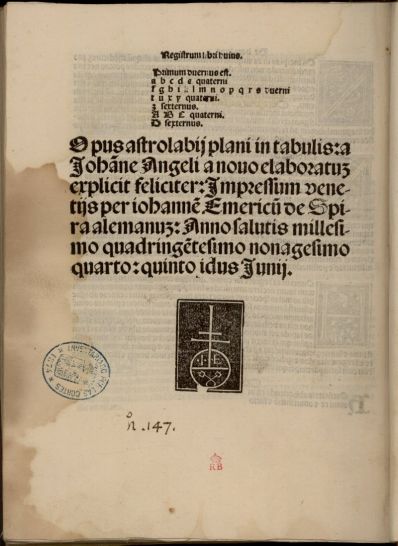 Registrum libri huius.
Primum duernus est.
a b c d e quaterni
f g h i l m n o p q r s duerni
t u x y quaterni.
z sexternus.
A B C quaterni.
D sexternus.
Opus astrolabij plani in tabulis: a
Johāne Angeli a nouo elaboratuꝫ
explicit feliciter: Impressum vene-
tijs per iohannē Emericū de Spi-
ra alemanuꝫ: Anno salutis millesi-
mo quadringētesimo nonagesimo
quarto: quinto idus Junij.
I E
LAS CORTES
1874
n̊. 147.
RB